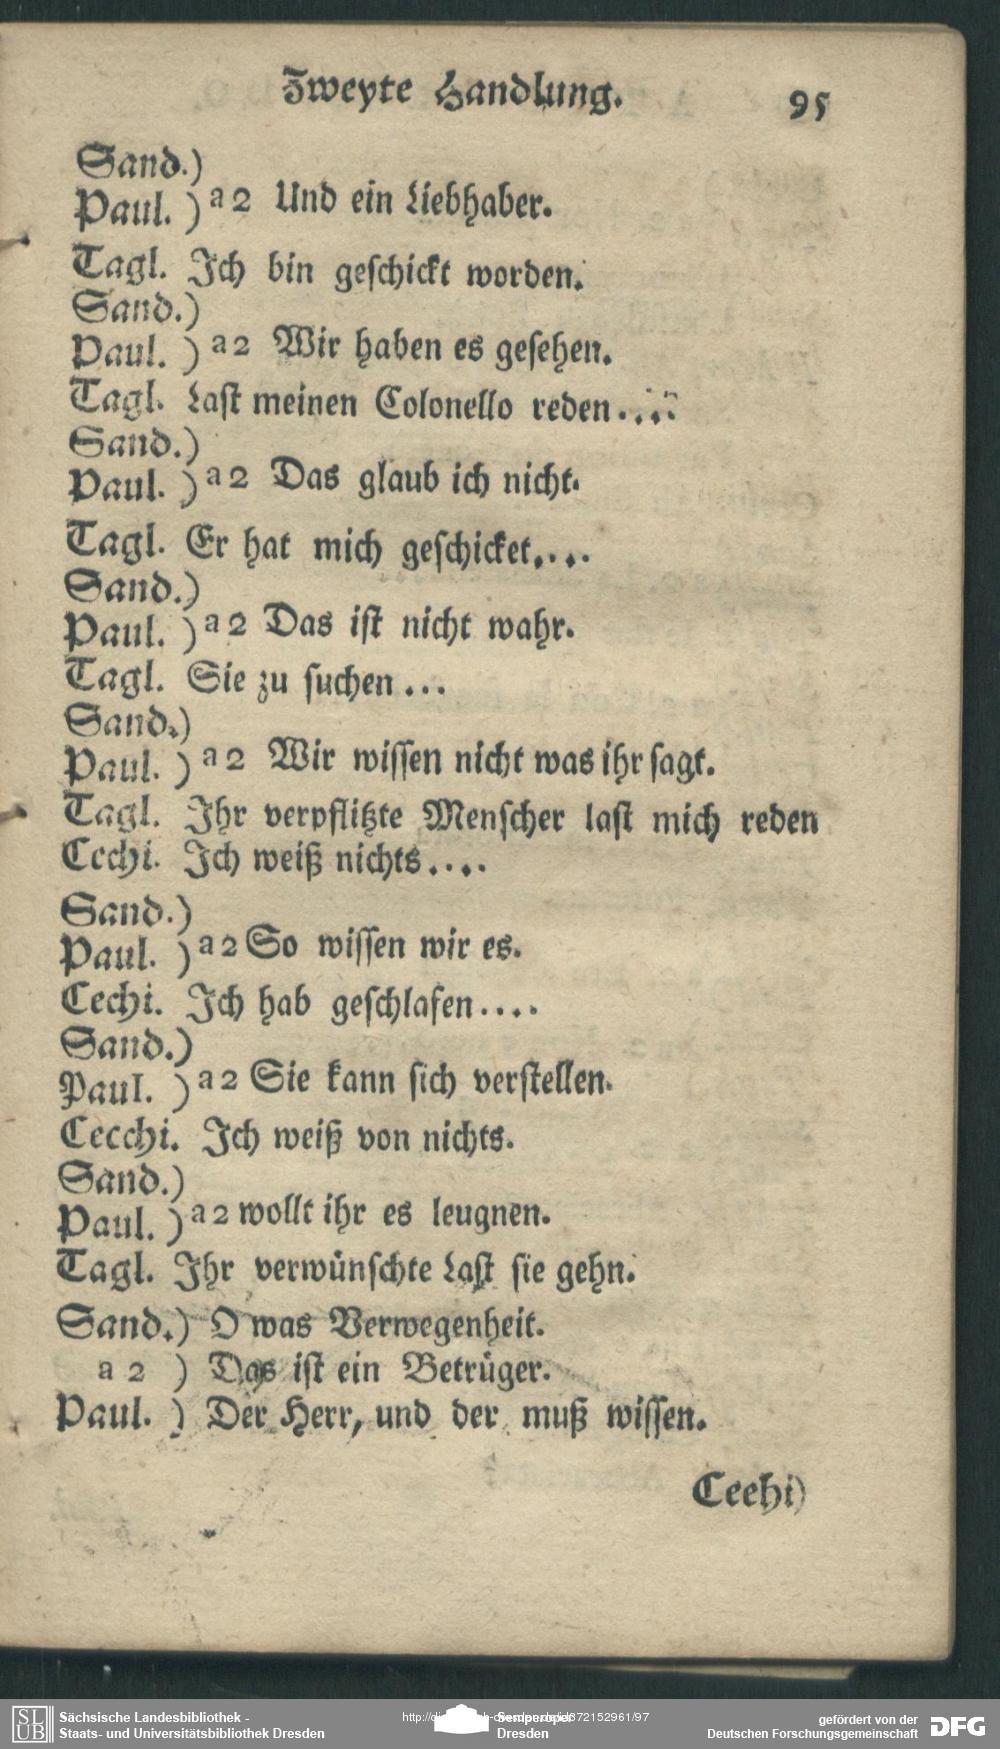 Zweyte Handlung. 95
Sand.)
Paul. ) a 2 Und ein Liebhaber.
Tagl. Ich bin geschickt worden.
Sand.)
Paul. ) a 2 Wir haben es gesehen.
Tagl. Last meinen Colonello reden....
Sand.)
Paul. ) a 2 Das glaub ich nicht.
Tagl. Er hat mich geschicket....
Sand.)
Paul. ) a 2 Das ist nicht wahr.
Tagl. Sie zu suchen...
Sand.)
Paul. ) a 2 Wir wissen nicht was ihr sagt.
Tagl. Ihr verpflitzte Menscher last mich reden
Cechi. Ich weiß nichts....
Sand.)
Paul. ) a 2 So wissen wir es.
Cechi. Ich hab geschlafen....
Sand.)
Paul. ) a 2 Sie kann sich verstellen.
Cecchi. Ich weiß von nichts.
Sand.)
Paul. ) a 2 wollt ihr es leugnen.
Tagl. Ihr verwünschte Last sie gehn.
Sand.) O was Verwegenheit.
a 2 ) Das ist ein Betrüger.
Paul. ) Der Herr, und der muß wissen.
Ceehi)
SLUB
Sächsische Landesbibliothek -
Staats- und Universitätsbibliothek Dresden
Semperoper
Dresden
gefördert von der
Deutschen Forschungsgemeinschaft
DFG